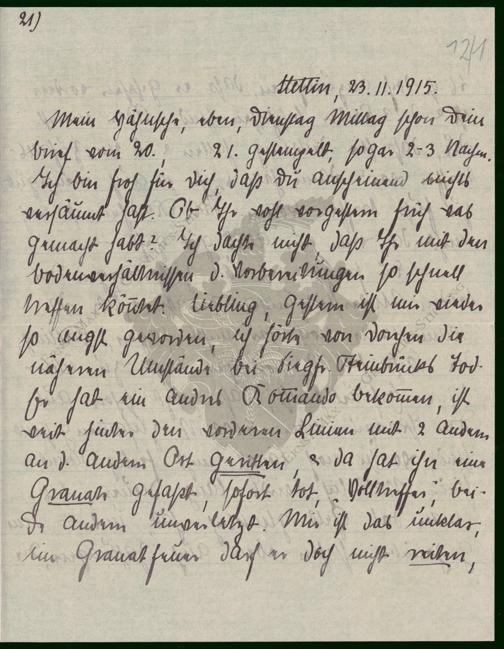 21)
121
Stettin, 23.11.1915.
Mein , eben, Dienstag Mittag schon Dein
Brief vom 20., 21. gestempelt, sogar 2-3 Nachm.
Ich bin froh für Dich, daß Du anscheinend nichts
versäumt hast. Ob Ihr wohl vorgestern früh was
gemacht habt? Ich dachte nicht daß Ihr mit den
Bodenverhältnissen d. Vorbereitungen so schnell
treffen könntet. Liebling, gestern ist mir wieder
so angst geworden, ich hörte von Dorchen die
näheren Umstände bei Siegfr. Steinbrücks Tod.
Er hat ein andres Komando bekommen, ist
weit hinter den vorderen Linien mit 2 Andern
an d. andern Ort geritten, & da hat ihn eine
Granate gefaßt, sofort tot, Volltreffer, bei-
de andern unverletzt. Mir ist das unklar,
im Granatfeuer darf er doch nicht reiten,